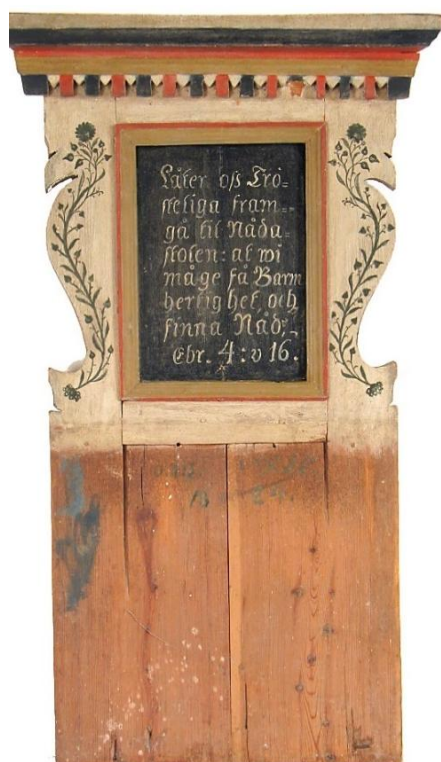 Låter oss Trö=
steliga fram=
gå til Nåda=
stolen: at wi
måge få Barm
hertighet och
finna Nåd,
Ebr. 4: v 16.